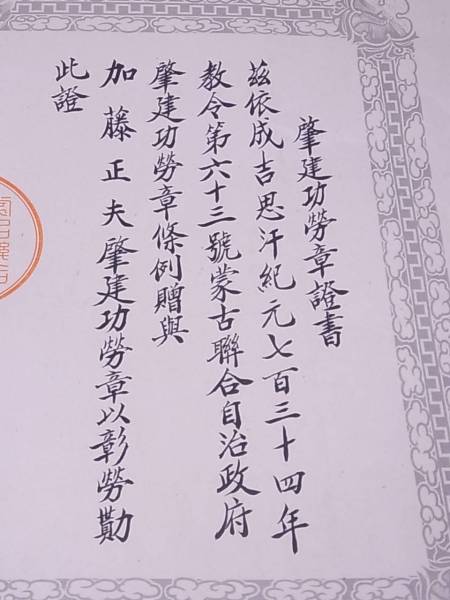 肇建功勞章證書
茲依成吉思汗紀元七百三十四年
教令第六十三號蒙古聯合自治政府
肇建功勞章條例贈與
加藤正夫肇建功勞章以彰勞勩
此證